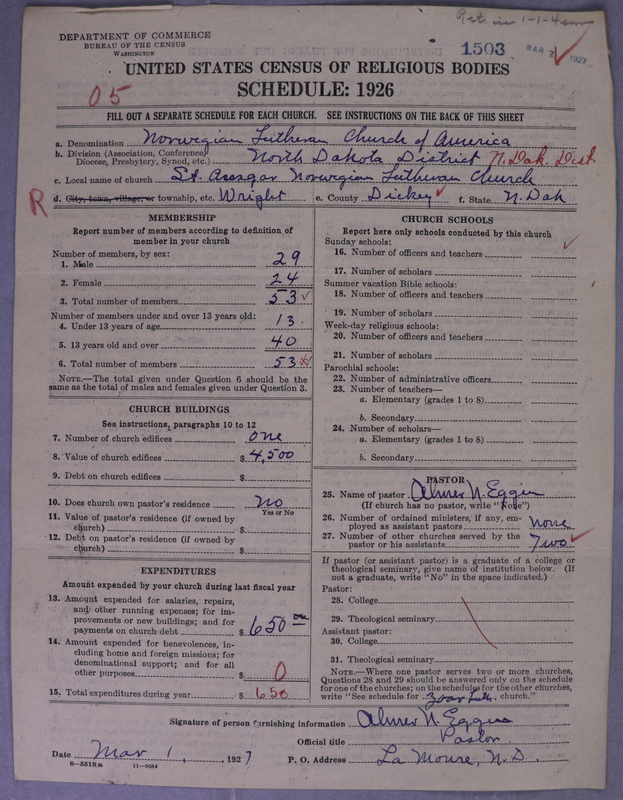 Ret. in 1-1-4
DEPARTMENT OF COMMERCE
BUREAU OF THE CENSUS
WASHINGTON
1503
MAR 1927
UNITED STATES CENSUS OF RELIGIOUS BODIES
05
SCHEDULE: 1926
FILL OUT A SEPARATE SCHEDULE FOR EACH CHURCH. SEE INSTRUCTIONS ON THE BACK OF THIS SHEET
a. Denomination Norwegian Lutheran Church of America
b. Division (Association, Conference, Diocese, Presbytery, Synod, etc.) North Dakota District N. Dak. Dist.
c. Local name of church St. Ansgar Norwegian Lutheran Church
R
d. City, town, village, or township, etc. Wright e. County Dickey f. State N. Dak
MEMBERSHIP
Report number of members according to definition of
member in your church
Number of members, by sex:
1. Male 29
2. Female 24
3. Total number of members 53
Number of members under and over 13 years old:
4. Under 13 years of age 13
5. 13 years old and over 40
6. Total number of members 53
NOTE.—The total given under Question 6 should be the
same as the total of males and females given under Question 3.
CHURCH BUILDINGS
See instructions, paragraphs 10 to 12
7. Number of church edifices one
8. Value of church edifices $ 4,500
9. Debt on church edifices $
10. Does church own pastor's residence no
Yes or No
11. Value of pastor's residence (if owned by
church) $
12. Debt on pastor's residence (if owned by
church) $
EXPENDITURES
Amount expended by your church during last fiscal year
13. Amount expended for salaries, repairs,
and other running expenses; for im-
provements or new buildings; and for
payments on church debt $ 650 00
14. Amount expended for benevolences, in-
cluding home and foreign missions; for
denominational support; and for all
other purposes $ 0
15. Total expenditures during year $ 650
CHURCH SCHOOLS
Report here only schools conducted by this church
Sunday schools:
16. Number of officers and teachers
17. Number of scholars
Summer vacation Bible schools:
18. Number of officers and teachers
19. Number of scholars
Week-day religious schools:
20. Number of officers and teachers
21. Number of scholars
Parochial schools:
22. Number of administrative officers
23. Number of teachers—
a. Elementary (grades 1 to 8)
b. Secondary
24. Number of scholars—
a. Elementary (grades 1 to 8)
b. Secondary
PASTOR
25. Name of pastor Almer N. Eggen
(If church has no pastor, write "None")
26. Number of ordained ministers, if any, em-
ployed as assistant pastors none
27. Number of other churches served by the
pastor or his assistants Two
If pastor (or assistant pastor) is a graduate of a college or
theological seminary, give name of institution below. (If
not a graduate, write "No" in the space indicated.)
Pastor:
28. College
29. Theological seminary
Assistant pastor:
30. College
31. Theological seminary
NOTE.—Where one pastor serves two or more churches,
Questions 28 and 29 should be answered only on the schedule
for one of the churches; on the schedules for the other churches,
write "See schedule for Zoar Luth. church."
Signature of person furnishing information Almer N. Eggen
Official title Pastor
Date Mar 1, 1927 P. O. Address La Moure, N. D.
8-5518a 11-9054